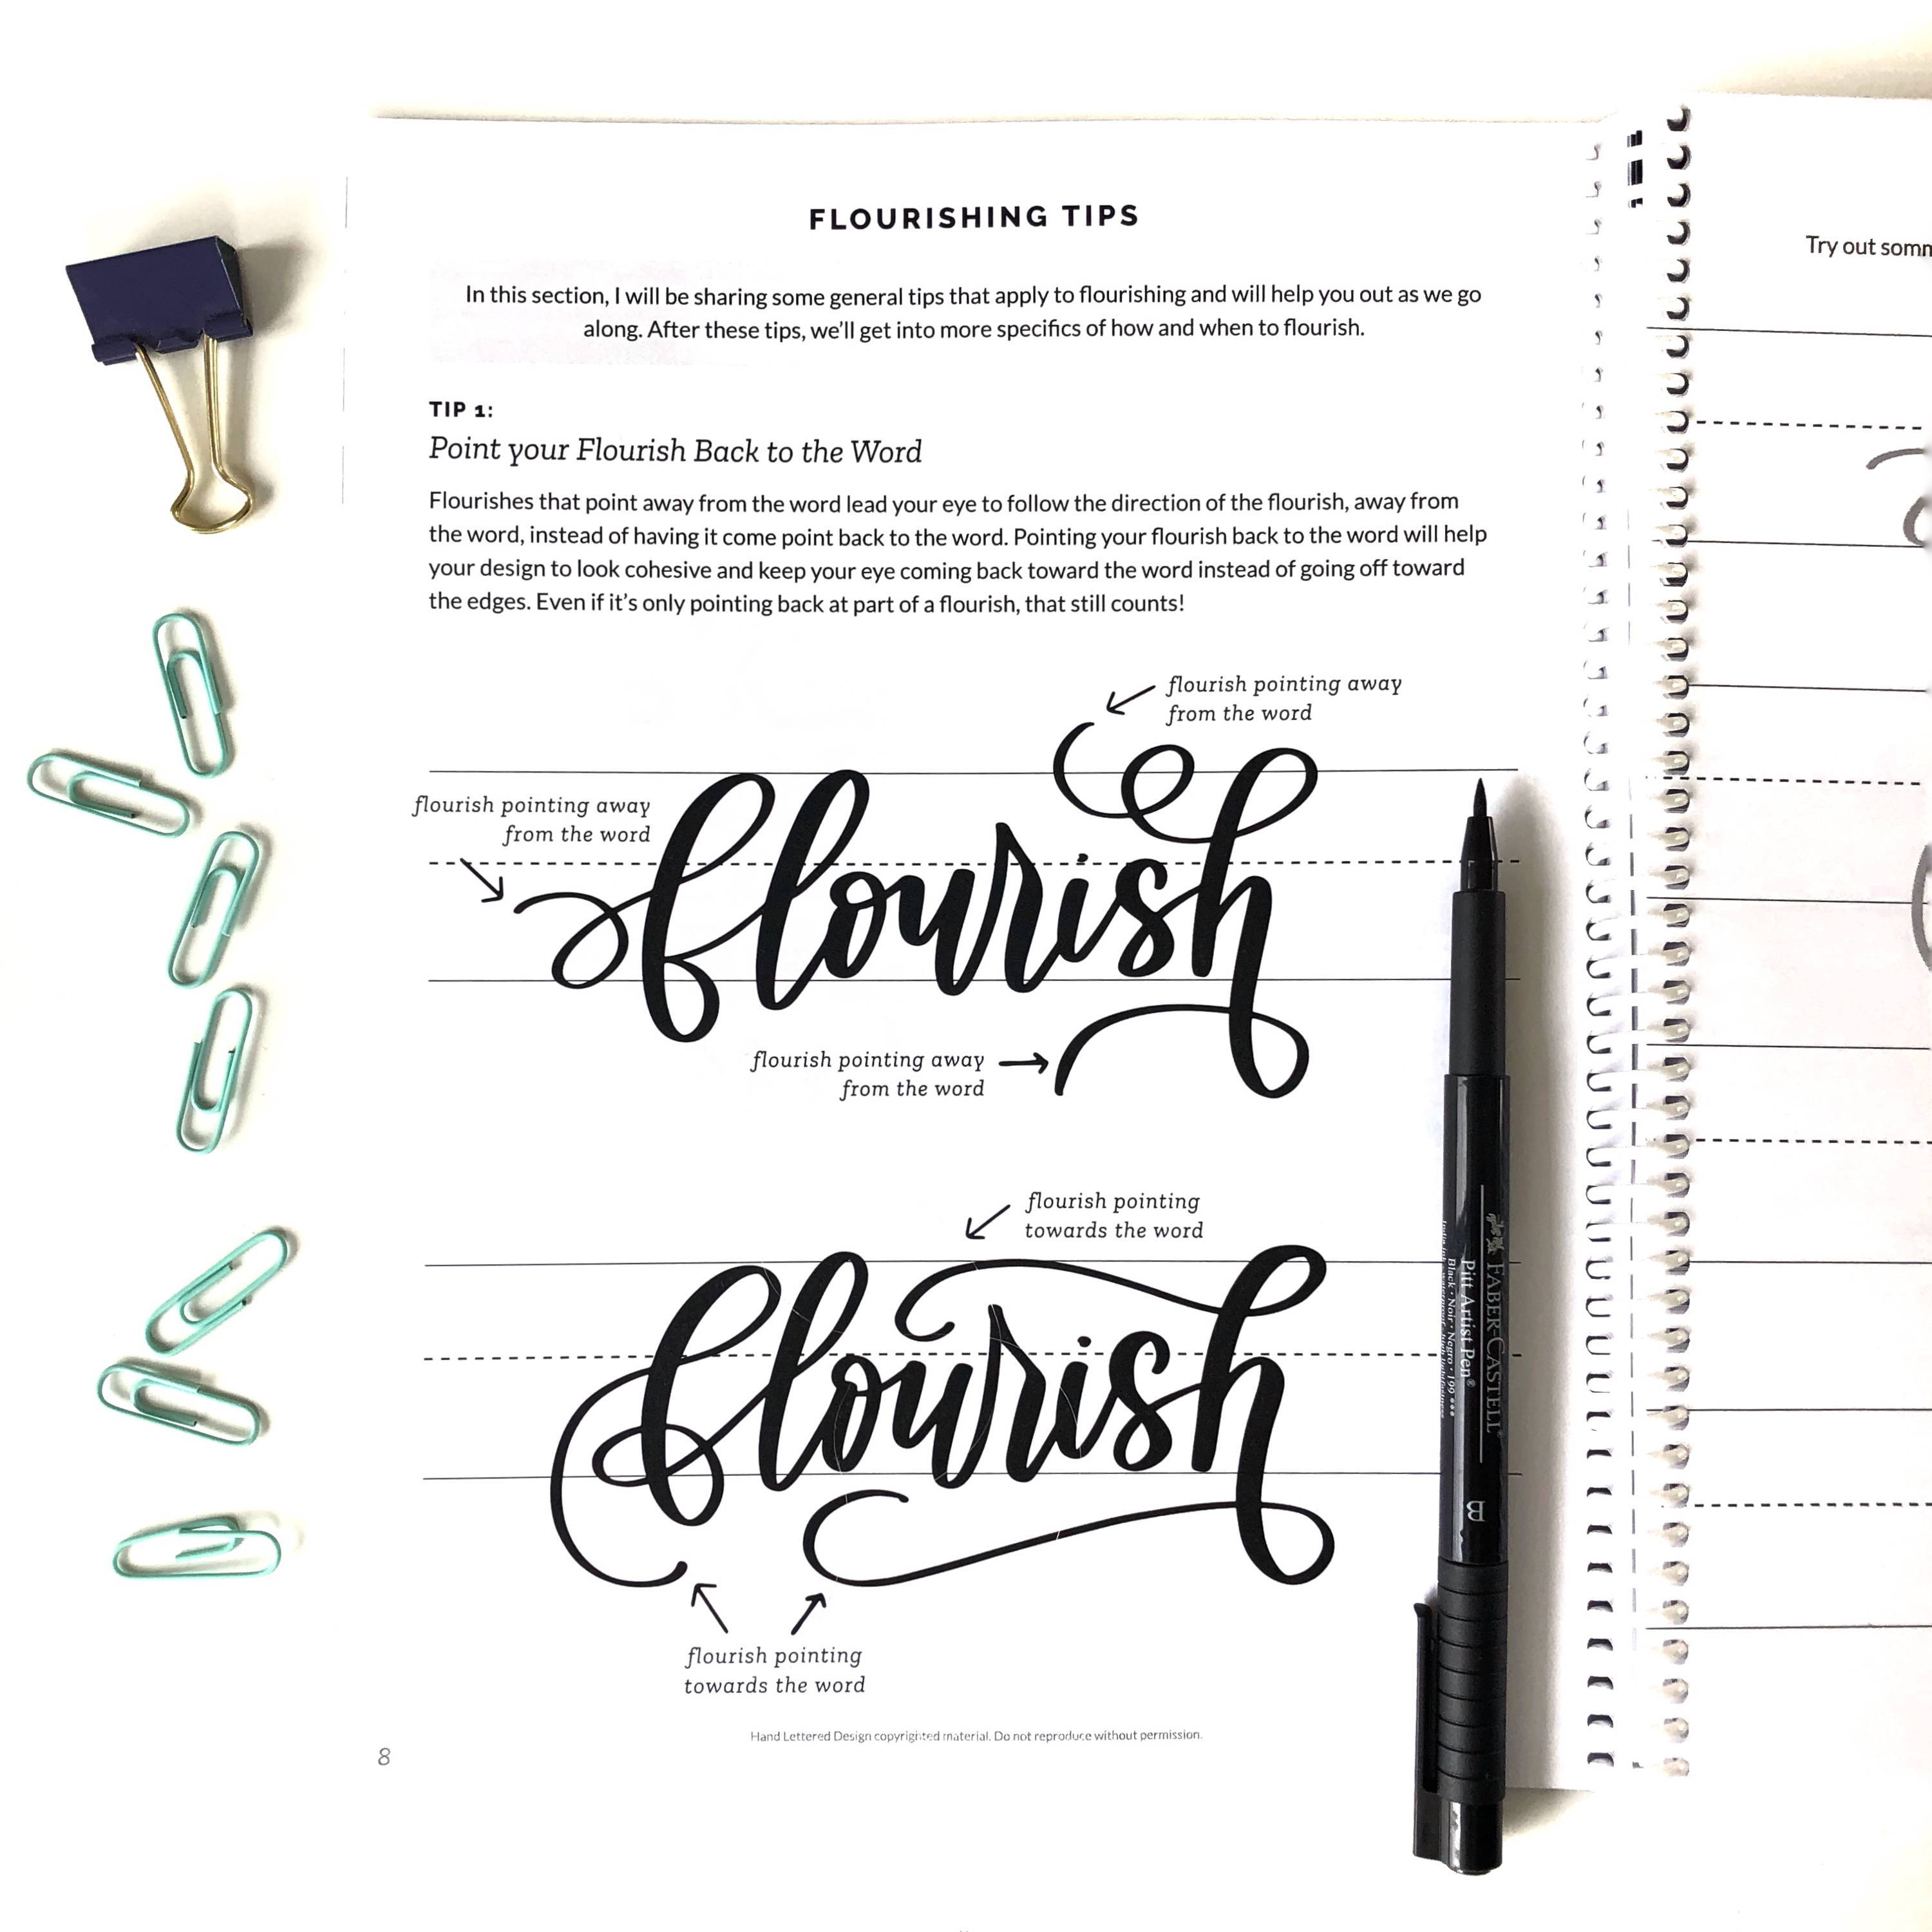 FLOURISHING TIPS
In this section, I will be sharing some general tips that apply to flourishing and will help you out as we go
along. After these tips, we'll get into more specifics of how and when to flourish.
TIP 1:
Point your Flourish Back to the Word
Flourishes that point away from the word lead your eye to follow the direction of the flourish, away from
the word, instead of having it come point back to the word. Pointing your flourish back to the word will help
your design to look cohesive and keep your eye coming back toward the word instead of going off toward
the edges. Even if it's only pointing back at part of a flourish, that still counts!
flourish pointing away
from the word
flourish pointing away
from the word
flourish
flourish pointing away
from the word
flourish pointing
towards the word
flourish
flourish pointing
towards the word
Hand Lettered Design copyrighted material. Do not reproduce without permission.
8
Try out
FABER-CASTELL
Pitt Artist Pen®
Black • Noir • Negro • 199 ***
B